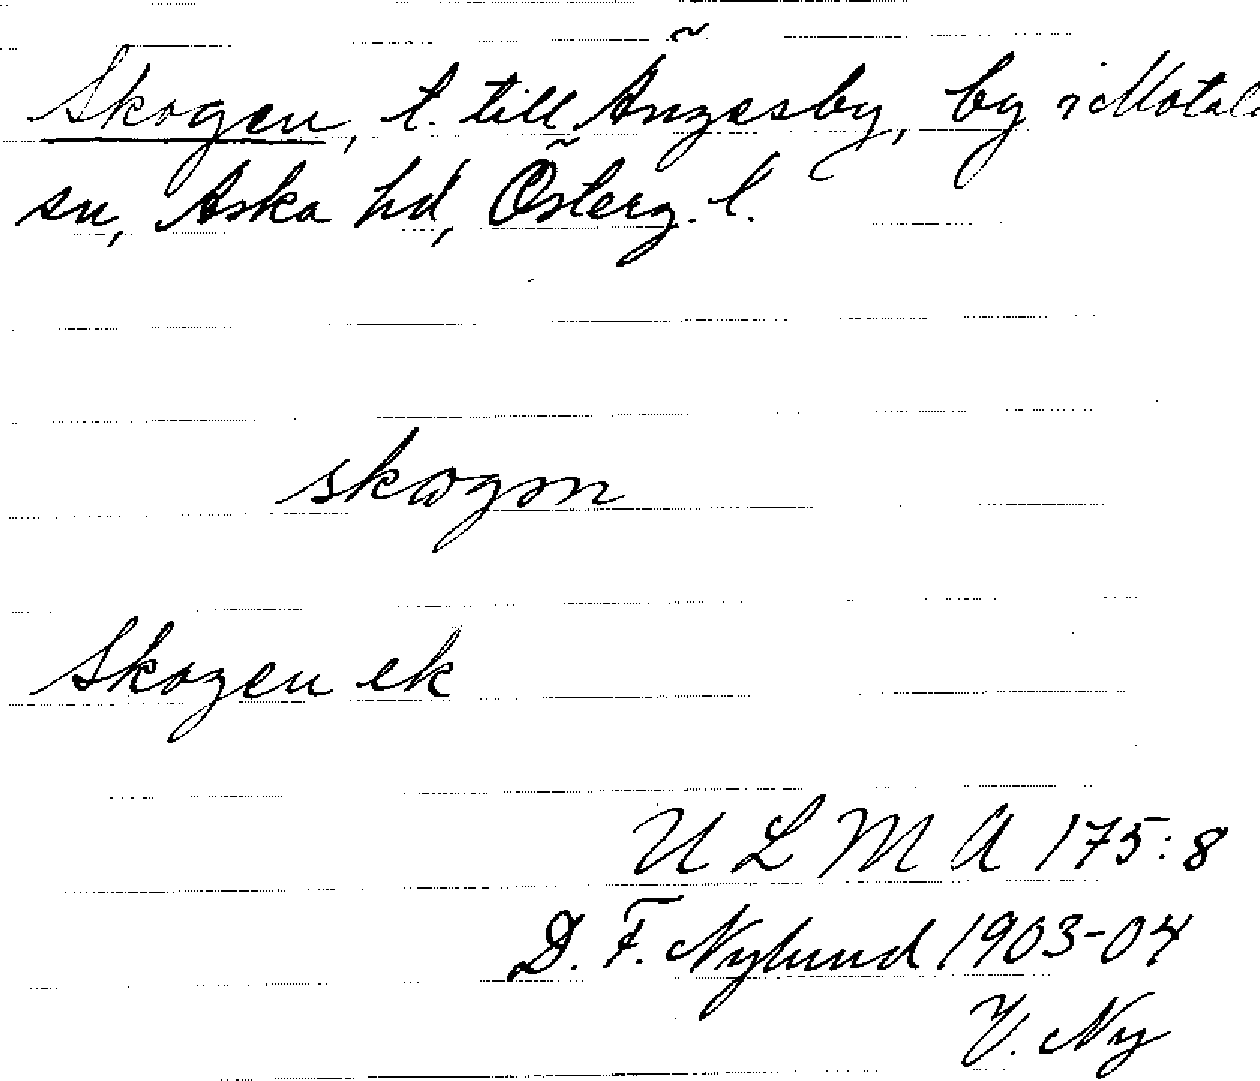 Skogen, t. till Ängesby, by i Motala
sn, Aska hd, Österg. l.
skogən
Skogen ek
U L M A 175:8
D. F. Nylund 1903-04
V. Ny